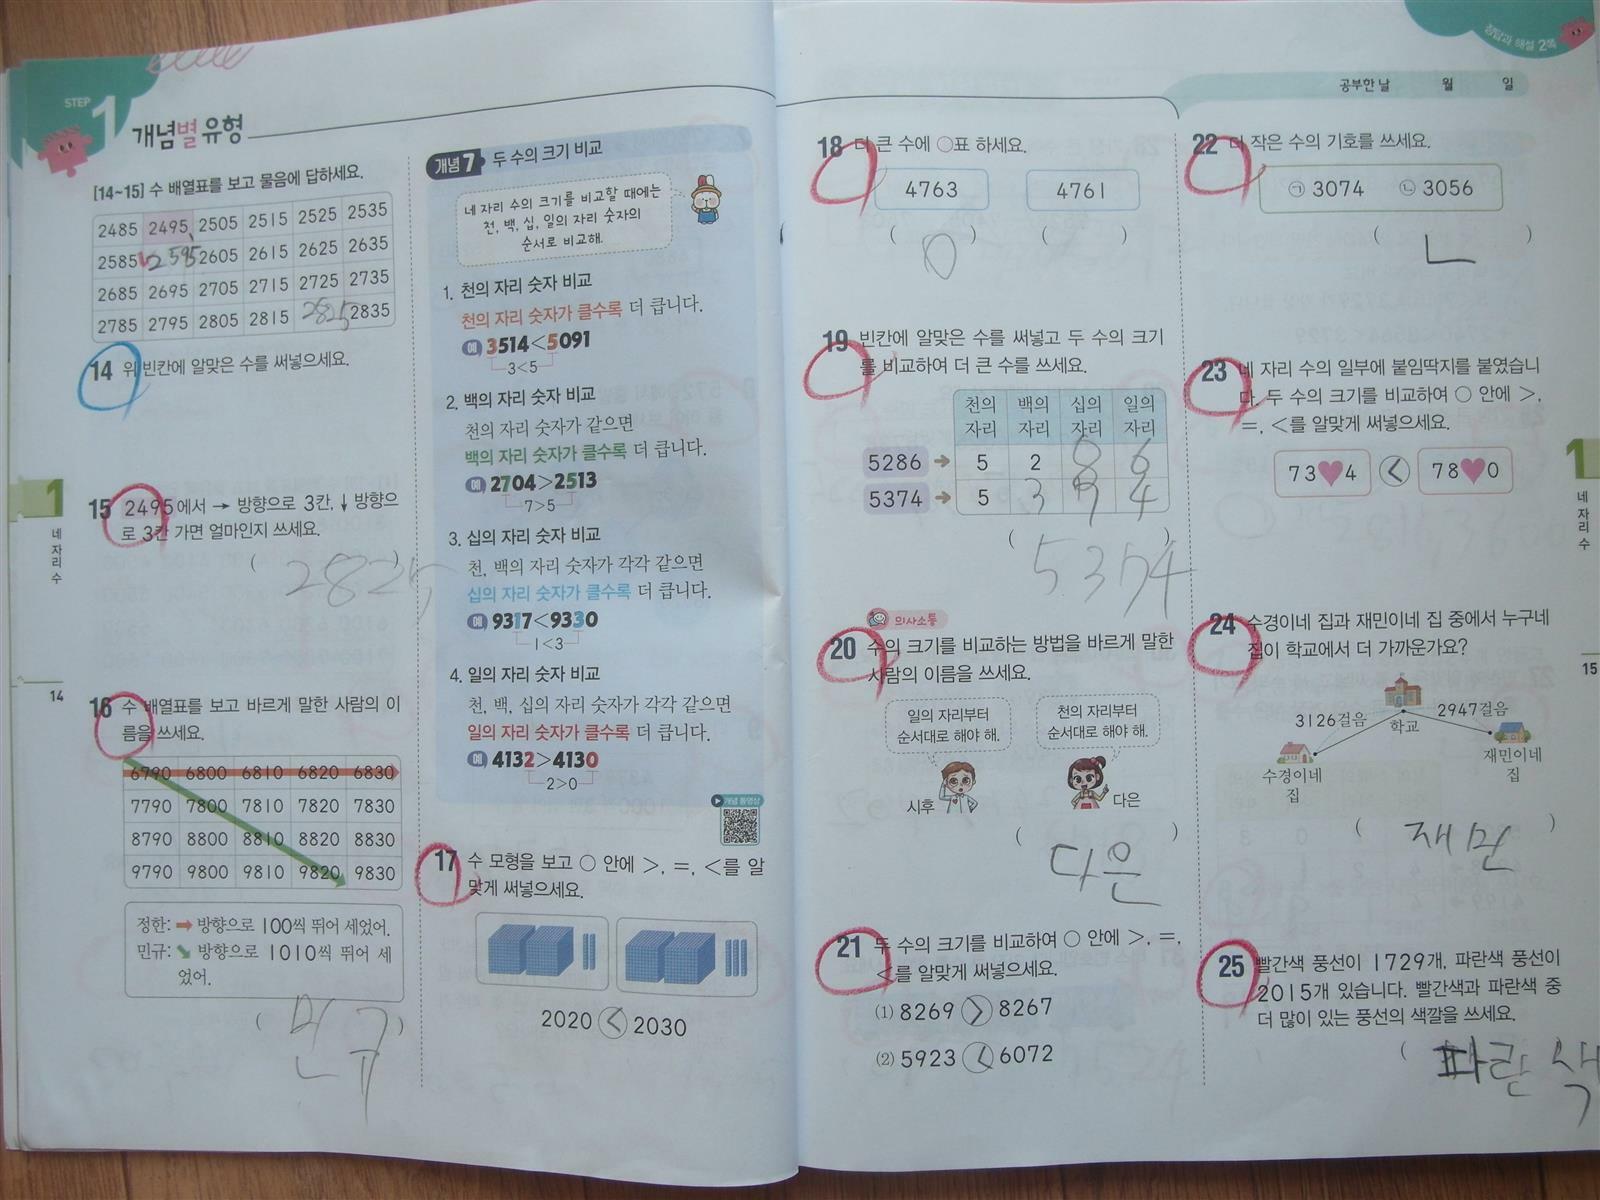 STEP 1 개념별 유형
[14~15] 수 배열표를 보고 물음에 답하세요.
2485 2495 2505 2515 2525 2535
2585 2595 2605 2615 2625 2635
2685 2695 2705 2715 2725 2735
2785 2795 2805 2815 2825 2835
14 위 빈칸에 알맞은 수를 써넣으세요.
15 2495에서 → 방향으로 3칸, ↓ 방향으
로 3칸 가면 얼마인지 쓰세요.
( 2825 )
16 수 배열표를 보고 바르게 말한 사람의 이
름을 쓰세요.
6790 6800 6810 6820 6830
7790 7800 7810 7820 7830
8790 8800 8810 8820 8830
9790 9800 9810 9820 9830
정한: ➡ 방향으로 100씩 뛰어 세었어.
민규: ↘ 방향으로 1010씩 뛰어 세
었어.
( 민규 )
1
네 자리 수
14
개념 7 두 수의 크기 비교
네 자리 수의 크기를 비교할 때에는
천, 백, 십, 일의 자리 숫자의
순서로 비교해.
1. 천의 자리 숫자 비교
천의 자리 숫자가 클수록 더 큽니다.
예 3514<5091
3<5
2. 백의 자리 숫자 비교
천의 자리 숫자가 같으면
백의 자리 숫자가 클수록 더 큽니다.
예 2704>2513
7>5
3. 십의 자리 숫자 비교
천, 백의 자리 숫자가 각각 같으면
십의 자리 숫자가 클수록 더 큽니다.
예 9317<9330
1<3
4. 일의 자리 숫자 비교
천, 백, 십의 자리 숫자가 각각 같으면
일의 자리 숫자가 클수록 더 큽니다.
예 4132>4130
2>0
개념 동영상
17 수 모형을 보고 ○ 안에 >, =, <를 알
맞게 써넣으세요.
2020 < 2030
정답과 해설 2쪽
공부한 날 월 일
18 더 큰 수에 ○표 하세요.
4763 4761
( 0 ) ( )
19 빈칸에 알맞은 수를 써넣고 두 수의 크기
를 비교하여 더 큰 수를 쓰세요.
천의 자리 백의 자리 십의 자리 일의 자리
5286 ➔ 5 2 8 6
5374 ➔ 5 3 7 4
( 5374 )
의사소통
20 수의 크기를 비교하는 방법을 바르게 말한
사람의 이름을 쓰세요.
일의 자리부터
순서대로 해야 해.
시후
천의 자리부터
순서대로 해야 해.
다은
( 다은 )
21 두 수의 크기를 비교하여 ○ 안에 >, =,
<를 알맞게 써넣으세요.
(1) 8269 > 8267
(2) 5923 < 6072
22 더 작은 수의 기호를 쓰세요.
㉠ 3074 ㉡ 3056
( ㄴ )
23 네 자리 수의 일부에 붙임딱지를 붙였습니
다. 두 수의 크기를 비교하여 ○ 안에 >,
=, <를 알맞게 써넣으세요.
73♥4 < 78♥0
24 수경이네 집과 재민이네 집 중에서 누구네
집이 학교에서 더 가까운가요?
3126걸음 2947걸음
학교
수경이네
집
재민이네
집
( 재민 )
25 빨간색 풍선이 1729개, 파란색 풍선이
2015개 있습니다. 빨간색과 파란색 중
더 많이 있는 풍선의 색깔을 쓰세요.
( 파란색
1
네 자리 수
15